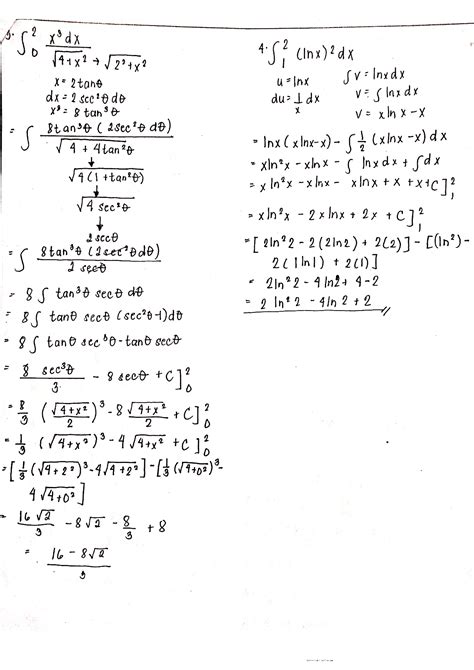 3. ∫₀² x³dx / √(4+x²) → √(2²+x²)
x = 2tanθ
dx = 2 sec²θ dθ
x³ = 8 tan³θ
= ∫ 8tan³θ (2sec²θ dθ) / √(4 + 4tan²θ)
↓
√(4(1+tan²θ))
↓
√(4 sec²θ)
↓
2secθ
= ∫ 8tan³θ (2sec²θdθ) / 2 secθ
= 8∫ tan³θ secθ dθ
= 8∫ tanθ secθ (sec²θ-1)dθ
= 8∫ tanθ sec³θ - tanθ secθ
= 8 sec³θ / 3 - 8 secθ + C ]₀²
= 8/3 (√(4+x²) / 2)³ - 8 √(4+x²) / 2 + C ]₀²
= 1/3 (√(4+x²))³ - 4 √(4+x²) + C ]₀²
= [1/3 (√(4+2²))³ - 4√(4+2²)] - [1/3 (√(4+0²))³ -
4√(4+0²)]
= 16√2 / 3 - 8√2 - 8/3 + 8
= 16 - 8√2 / 3
4. ∫₁² (lnx)² dx
u = lnx ∫v = lnxdx
du = 1/x dx v = ∫ lnx dx
v = xlnx - x
= lnx (xlnx-x) - ∫ 1/2 (xlnx - x) dx
= xln²x - xlnx - ∫ lnxdx + ∫dx
= x ln²x - xlnx - xlnx + x + x + C ]₁²
= xln²x - 2xlnx + 2x + C ]₁²
= [ 2ln²2 - 2(2ln2) + 2(2)] - [(ln²) -
2(1ln1) + 2(1)]
= 2ln²2 - 4ln2 + 4 - 2
= 2 ln²2 - 4ln2 + 2